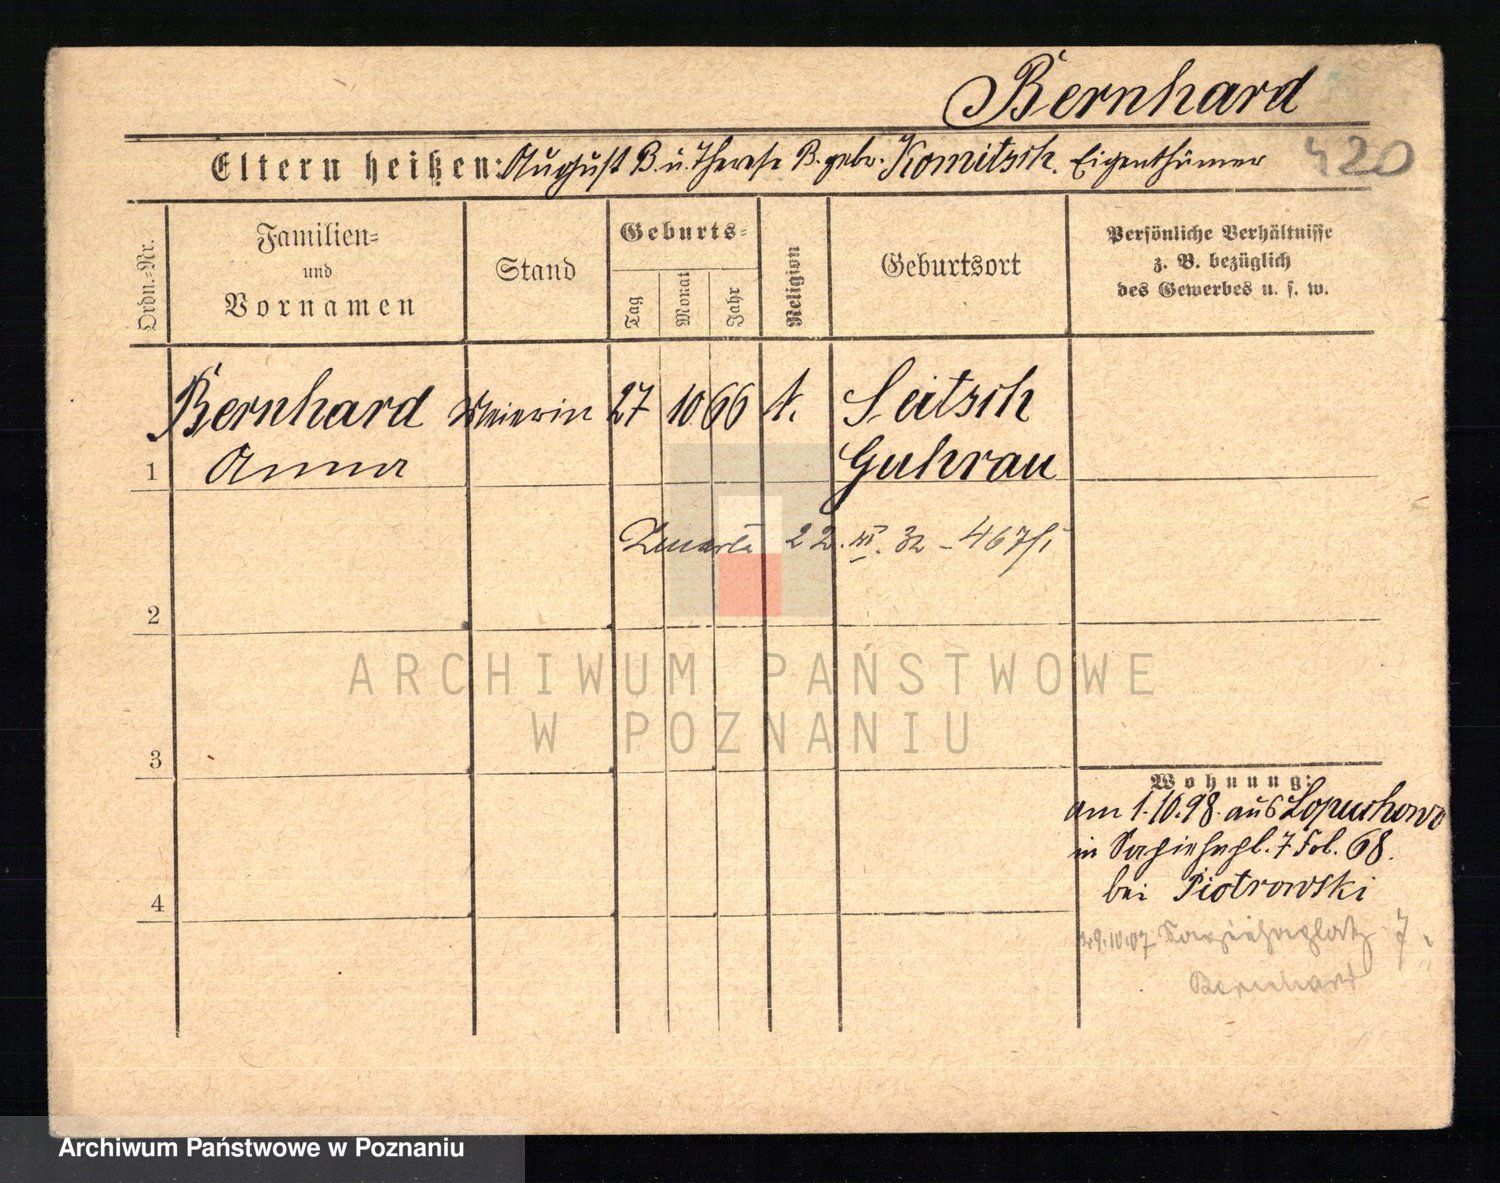 Bernhard
Eltern heißen: August B. u. Therese B. gebr. Komitsch. Eigenthümer
420
Ordn.-Nr.
Familien- und Vornamen
Stand
Geburts-
Tag
Monat
Jahr
Religion
Geburtsort
Persönliche Verhältnisse
z. B. bezüglich
des Gewerbes u. s. w.
Bernhard Meierin 27 10 66 k. Seitsch
1 Anna Guhrau
Zmarła 22. III. 32 - 467/I
2
ARCHIWUM PAŃSTWOWE
W POZNANIU
3
Wohnung:
am 1.10.98. aus Lopuchowo
in Sapiehapl. 7 Fol. 68.
bei Piotrowski
4
29.10.07 Sapiehaplatz 7
Bernhard
Archiwum Państwowe w Poznaniu